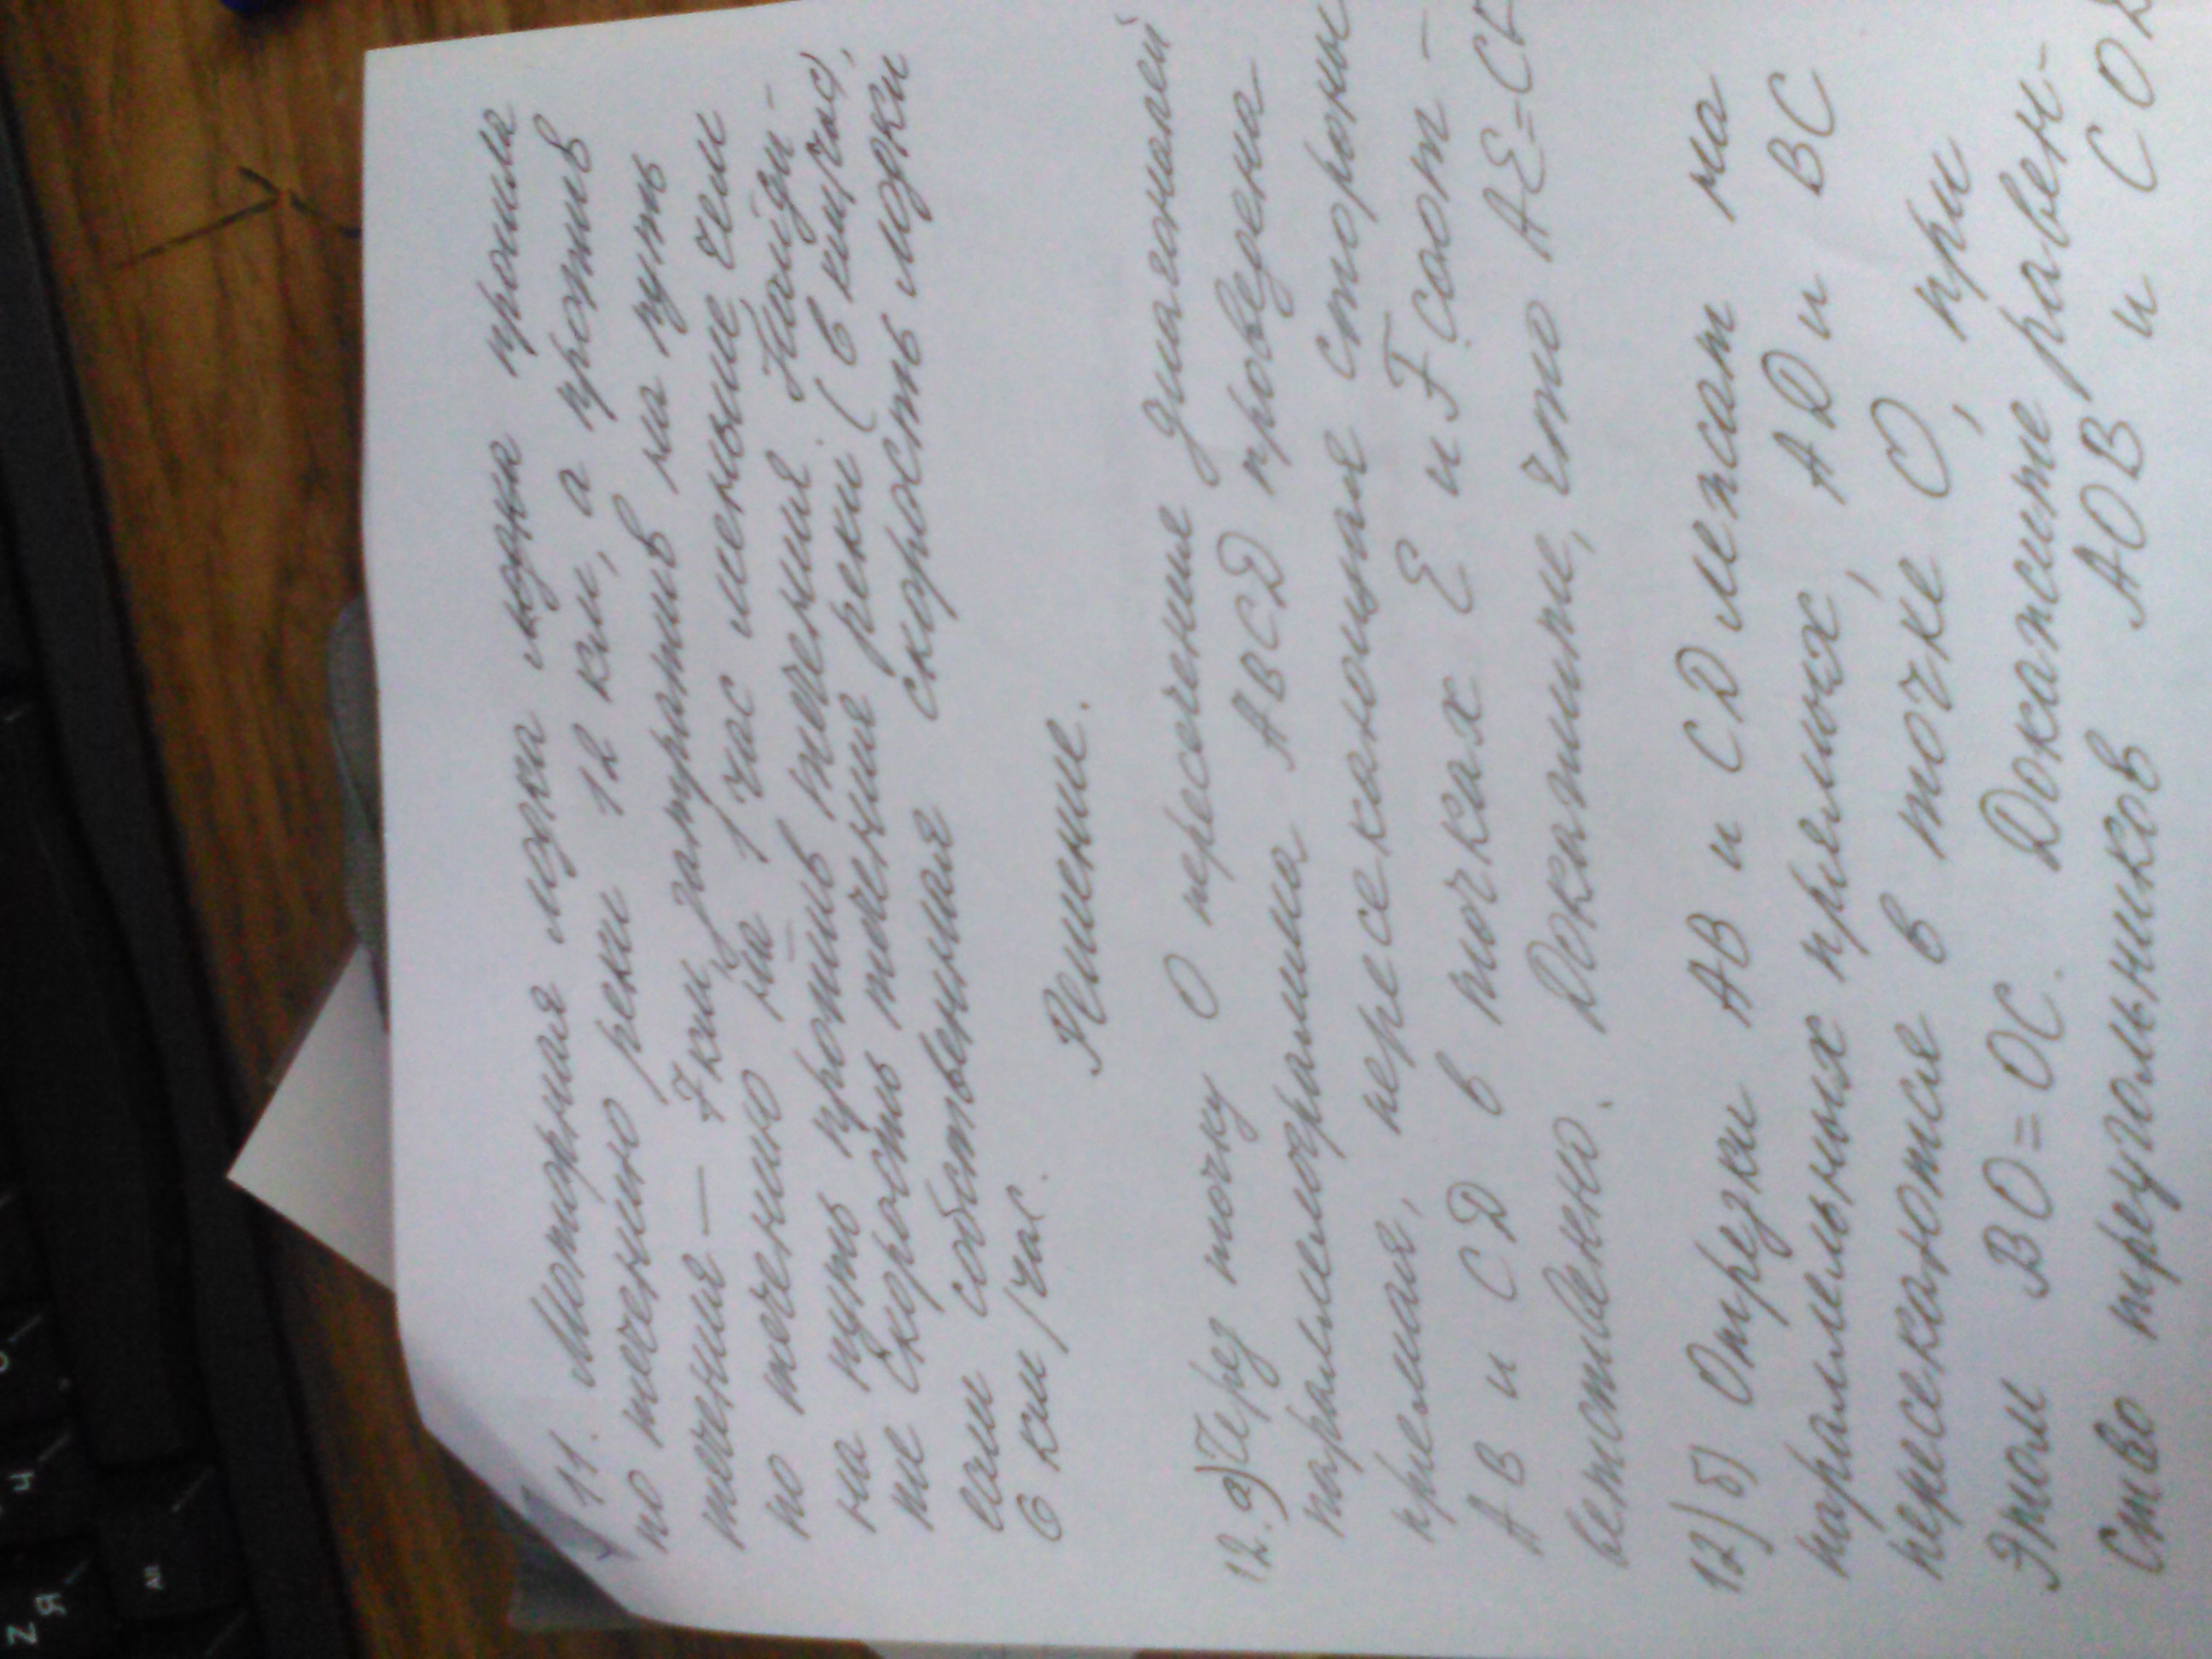 11. Моторная лодка лодка прошла
по течению реки 12 км, а против
течения — 7 км, затратив на путь
по течению на 1 час меньше, чем
на путь против течения. Найди-
те скорость течения реки (в км/час),
если собственная скорость лодки
6 км/час.
Решение.
12. а) Через точку О пересечение диагоналей
параллелограмма ABCD проведена
прямая, пересекающие стороны
AB и CD в точках E и F соот-
ветственно. Докажите, что AE=CF
12) б) Отрезки AB и CD лежат на
параллельных прямых, AD и BC
пересекаются в точке О, при
этом BO=OC. Докажите равен-
ство треугольников AOB и COD
Z
Я
Ч
Alt